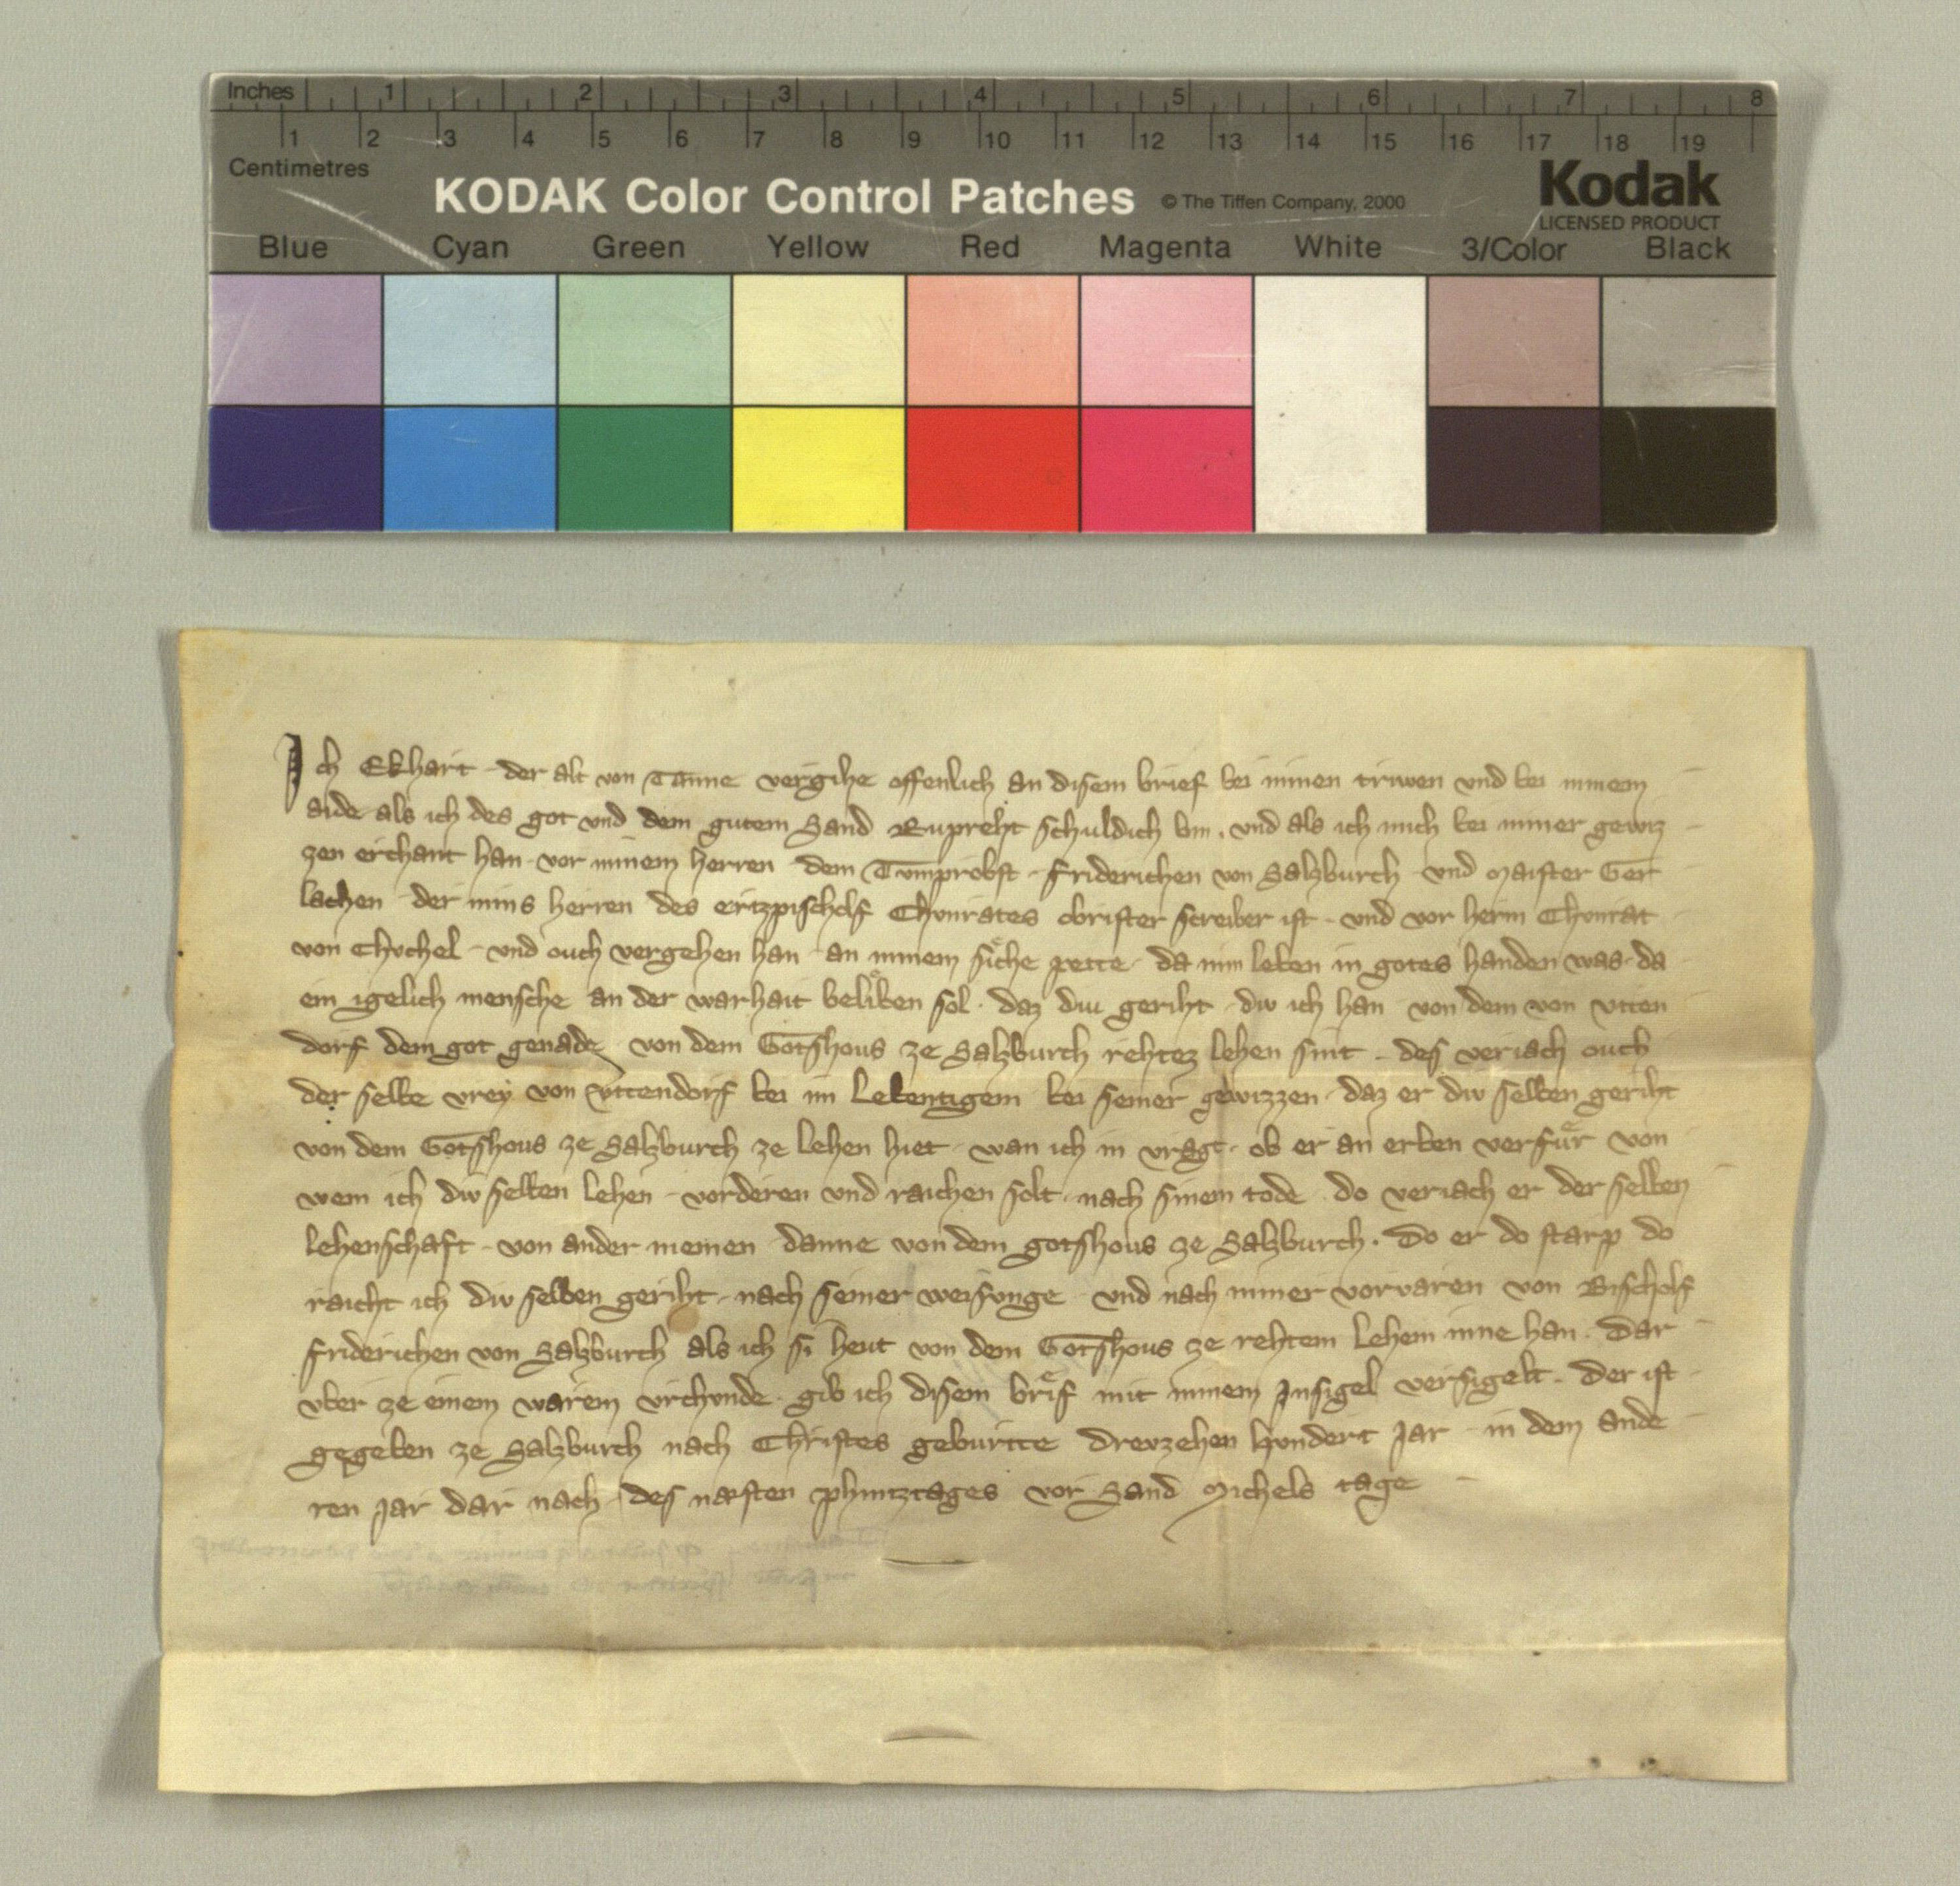 Inches 1 2 3 4 5 6 7 8
1 2 3 4 5 6 7 8 9 10 11 12 13 14 15 16 17 18 19
Centimetres
KODAK Color Control Patches © The Tiffen Company, 2000 Kodak
LICENSED PRODUCT
Blue Cyan Green Yellow Red Magenta White 3/Color Black
Ich Ekhart der alt von Tanne vergihe offenlich an disem brief bei minen triwen vnd bei minem
aide als ich des got vnd dem gutem Sand Rupreht schuldich bin. vnd als ich mich bei miner gewiz
zen erchant han vor minem herren dem Tumprobst Friderichen von Salzburch vnd Maister Ger
lachen der mins herren des ertzpischolf Chvnrates obrister screiber ist vnd vor hern Chvnrat
von Chvchel vnd ouch vergehen han an minem siͤche pette da min leben in gotes handen was da
ein igelich mensche an der warhait beliͤben sol. daz diu geriht div ich han von dem von Vtten
dorf dem got genade von dem Gotshous ze Salzburch rehtez lehen sint des veriach ouch
der selbe vrey von Vttendorf bei im lebentigem bei seiner gewizzen daz er div selben geriht
von dem Gotshous ze Salzburch ze lehen hiet wan ich in vragt ob er an erben verfuͤr von
wem ich div selben lehen vorderen vnd raichen solt nach sinem tode do veriach er der selben
lehenschaft von ander niemen danne von dem gotshous ze Salzburch. Do er do starp do
raicht ich div selben geriht nach seiner weisvnge vnd nach miner vorvaren von Bischolf
Friderichen von Salzburch als ich si heut von dem Gotshous ze rehtem lehem inne han. Dar
vber ze einem warem vrchvnde gib ich disem briͤf mit minem Insigel versigelt. Der ist
gegeben ze Salzburch nach Christes geburtte Drevzehen hvndert Jar in dem ande
ren Jar dar nach des næsten phintztages vor Sand Michels tage